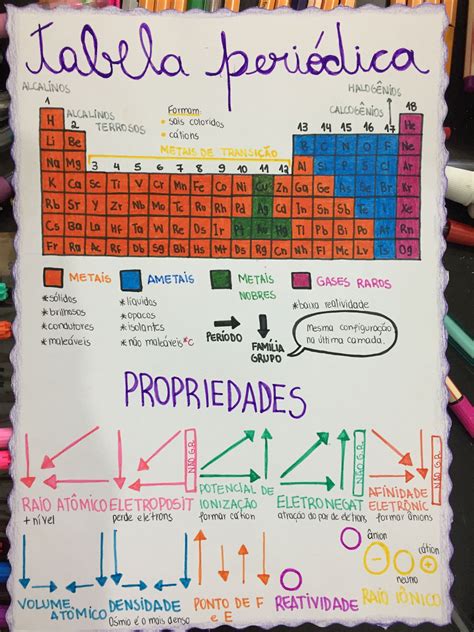 tabela periódica
ALCALINOS
1
ALCALINOS
2 TERROSOS
Formam:
• sais coloridos
• cátions
METAIS DE TRANSIÇÃO
HALOGÊNIOS
CALCOGÊNIOS
18
13 14 15 16 17
3 4 5 6 7 8 9 10 11 12
H He
Li Be B C N O F Ne
Na Mg Al Si P S Cl Ar
K Ca Sc Ti V Cr Mn Fe Co Ni Cu Zn Ga Ge As Se Br Kr
Rb Sr Y Zr Nb Mo Tc Ro Rh Pd Ag Cd In Sn Sb Te I Xe
Cs Ba La Hf Ta W Re Os Ir Pt Au Hg Tl Pb Bi Po At Rn
Fr Ra Ac Rf Db Sg Bh Hs Mt Ds Rg Cn Nh Fl Mc Lv Ts Og
METAIS
*sólidos
*brilhosos
*condutores
*maleáveis
AMETAIS
*líquidos
*opacos
*isolantes
*não maleáveis *C
METAIS NOBRES
GASES RAROS
*baixa reatividade
PERÍODO
FAMÍLIA
GRUPO
Mesma configuração
na última camada.
PROPRIEDADES
RAIO ATÔMICO
+ nível
NÃO G.R.
ELETROPOSIT
perde elétrons
POTENCIAL DE
IONIZAÇÃO
formar cátion
NÃO G.R.
ELETRONEGAT
atração do par de elétrons
NÃO G.R.
AFINIDADE
ELETRÔNIC
formar ânions
VOLUME
ATÔMICO
DENSIDADE
Ósmio é o mais denso
PONTO DE F
e E
REATIVIDADE
ânion
cátion
neutro
RAIO IÔNICO